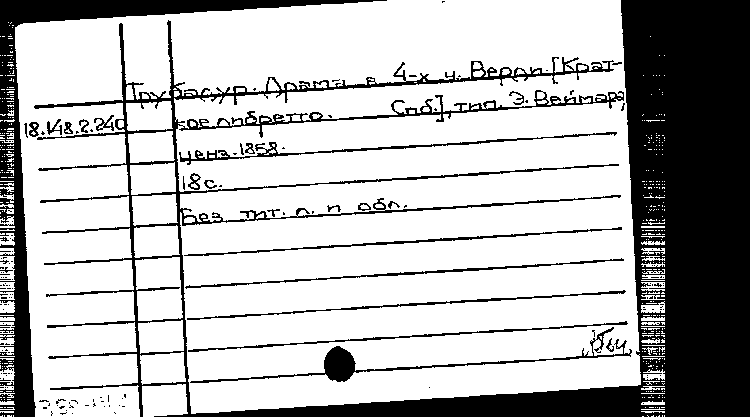 Трубадур. Драма в 4-х ч. Верди. [Крат-
18.148.2.240 кое либретто. Спб], тип. Э. Веймара,
ценз. 1858.
18 с.
Без тит. л. и обл.